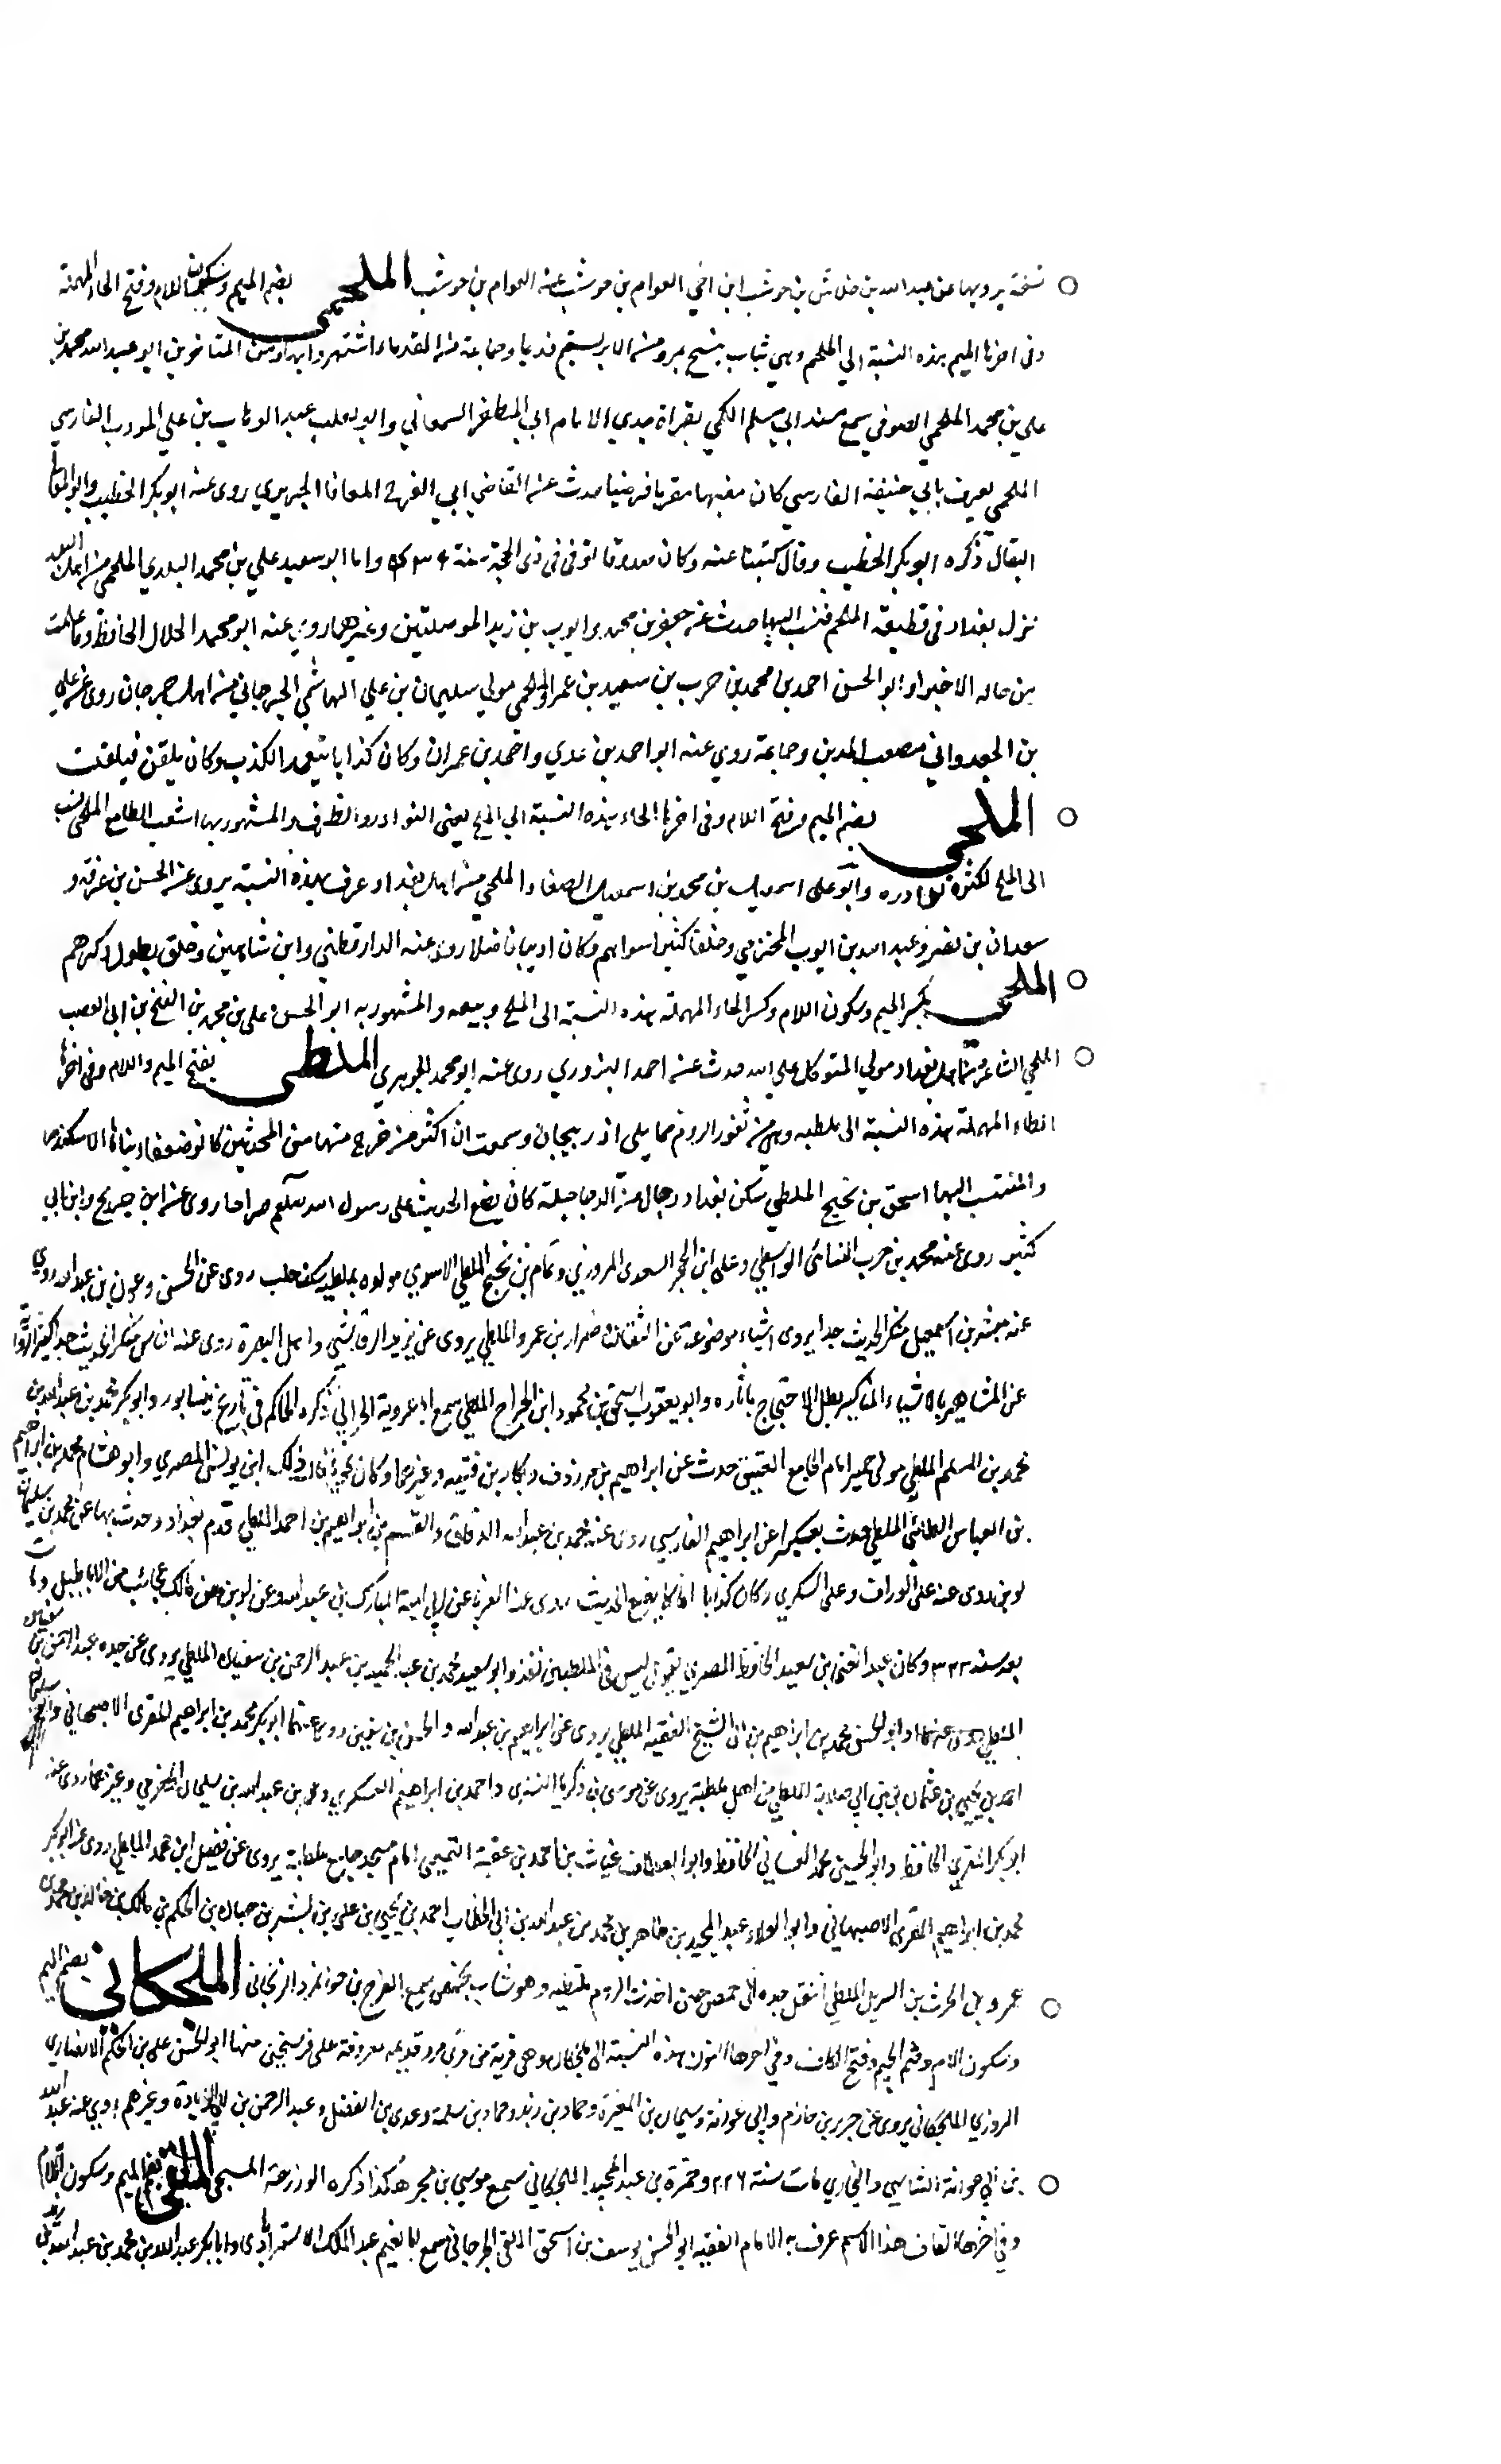 نسخة يرويها عن عبد الله بن خراش بن حوشب ابن اخي العوام بن حوشب عنه العوام بن حوشب الملحمي بضم الميم وسكون اللام وفتح الحاء المهملة
وفي اخرها الميم هذه النسبة الي الملحم وهي ثياب تنسج بمرو من الابريسم قديما وجماعة من القدماء اشتهروا بها ومن المتاخرين ابو عبد الله محمد بن
علي بن محمد الملحمي الصوفي سمع مسند ابي مسلم الكجي بقراة جدي الامام ابي المظفر السمعاني وابو تغلب عبد الوهاب بن علي المودب الفارسي
الملحمي يعرف بابي حنيفة الفارسي كان فقيها مقريا فرضيا حدث عن القاضي ابي الفرج المعافا الجريري روى عنه ابو بكر الخطيب وابو المعالي
البقال ذكره ابو بكر الخطيب وقال كتبنا عنه وكان صدوقا توفى في ذى الحجة سنة واما ابو سعيد علي بن محمد البلدي الملحمي من اهل البلد
نزل بغداد في قطيعة الملحم فنسب اليها حدث عن جعفر بن محمد وايوب بن زيد الموصليين وغيرهما روي عنه ابو محمد الخلال الحافظ وما علمت
من حاله الا خيرا وابو الحسن احمد بن محمد بن حرب بن سعيد بن عمرو الملحمي مولي سليمان بن علي الهاشمي الجرجاني من اهل جرجان روى عن علي
بن الجعد وابي مصعب المديني وجماعة روي عنه ابو احمد بن عدي واحمد بن عمران وكان كذابا يتعمد الكذب وكان يلقن فيلقن
الملحي بضم الميم وفتح اللام وفي اخرها الحاء هذه النسبة الي الملح يعني النوادر والظرف والمشهور بها اشعب الطامع الملحي نسب
الى الملح لكثرة نوادره وابو على اسمعيل بن محمد بن اسمعيل الصفار الملحي من اهل بغداد عرف بهذه النسبة يروى عن الحسن بن عرفة و
سعدان بن نصر وعبد الله بن ايوب المخزمي وخلقا كثير سواهم وكان اديبا فاضلا روى عنه الدارقطني وابن شاهين وخلق يطول ذكرهم
الملحي بكسر الميم وسكون اللام وكسر الحاء المهملة هذه النسبة الى الملح وبيعه والمشهور به ابو الحسن على بن محمد بن الفتح بن ابي العصب
الملحي الشاعر من اهل بغداد مولي المتوكل علي الله حدث عن احمد البزوري روى عنه ابو محمد الجوهري الملطي بفتح الميم واللام وفى اخرها
الطاء المهملة هذه النسبة الى ملطيه وهي من ثغور الروم مما يلى اذربيجان وسمعت ان اكثر من خرج منها من المحدثين كانوا ضعفاء بناها الاسكندر
والمنتسب اليها اسحق بن نجيح الملطي سكن بغداد دجال من الدجاجلة كان يضع الحديث على رسول الله صلعم صراحا روى عن ابن جريج وابن ابي
كثير روى عنه محمد بن حرب النسائى الواسطي وعلى ابن الحجر السعدى المروزي وتمام بن نجيح الملطي الاسدي مولده بملطيه سكن حلب روى عن الحسن وعون بن عبد الله روي
عنه مبشر بن اسمعيل منكر الحديث جدا يروى اشياء موضوعة عن الثقات وضرار بن عمرو الملطي يروى عن يزيد الرقاشي واهل البصرة روى عنه الناس منكر الحديث جدا كثير الرواية
عن المشاهير بالاشياء المناكير بطل الاحتجاج باثاره وابو يعقوب اسحق بن محمود ابن الجراح الملطي سمع ابا عروبة الحراني ذكره الحاكم في تاريخ نيسابور وابو بكر محمد بن عبد الله بن
محمد بن المسلم الملطي مولى حمير امام الجامع العتيق حدث عن ابراهيم بن مرزوق وبكار بن قتيبه وغيرهما وكان قال ذلك ابن يونس المصري وابو هشام محمد بن ابراهيم
بن العباس الطائي الملطي حدث بعسكر عن ابراهيم الفارسي روى عنه محمد بن عبد الله الدقاق والقسم بن ابراهيم بن احمد الملطي قدم بغداد وحدث بها عن محمد بن سليمان
لوين روى عنه علي الوراق وعلى السكري وكان كذابا افاكا يضع الحديث روى عن ابي امية المبارك بن عبد الله وعن لوين عن مالك عجائب من الاباطيل
بعد سنة ٣٢٣ وكان عبد الغني بن سعيد الحافظ المصري يقول ليس في الملطيين ثقة وابو سعيد محمد بن عبد الحميد بن عبد الرحمن بن سفيان الملطي يروى عن جده عبد الرحمن بن سفيان
الملطي روى عنهما وابو الحسن محمد بن ابراهيم بن الشيخ الفقيه الملطي يروى عن ابراهيم بن عبد الله و الحسن بن روى عنهما ابو بكر محمد بن ابراهيم المقرى الاصبهاني
احمد بن يحيى بن عثمان بن الملطي من اهل ملطية يروى عن موسى بن زكريا التستري واحمد بن ابراهيم العسكري بن عبد الله بن سليمان الحضرمي وغيرهما روى عنه
ابو بكر المقري الحافظ وابو الحسين محمد الغساني الحافظ وابو العطاف غياث بن احمد بن عقبة التميمى امام مسجد جامع ملطية يروى عن فضيل ابن محمد الملطي روى عنه ابو بكر
محمد بن ابراهيم المقرى الاصبهاني وابو العلاء عبد المجيد بن طاهر بن محمد بن عبد الله بن ابي الخطاب احمد بن يحيى بن على بن بشير بن حيان بن الحكم بن مالك بن خالد بن
عمرو بن الحرث بن الملطي انتقل جده الى حمص حين اخذت الروم ملطيه وهو شاب بحمص سمع الفرج بن الزنجاني الملجكاني بضم الميم
وسكون اللام وضم الجيم وفتح الكاف وفي اخرها النون هذه النسبة الى ملجكان وهي قرية من قرى مرو قديمه معروفة على فرسخين منها ابو الحسن علي بن الحكم الانصاري
المروزي الملجكاني يروى عن جرير بن حازم وابي عوانة وسليمان بن المغيرة وحماد بن زيد وحماد بن سلمة وعدى بن الفضل وعبد الرحمن بن ابي الزيادة وغيرهم روي عنه عبد الله
بن ابي عوانة الشاسى والبخاري مات سنة ٢٢٦ وحمزة بن عبد المجيد الملجكاني سمع موسي بن هكذا ذكره ابو زرعة السبحي الملقي بضم الميم وسكون اللام
وفي اخرها القاف هذا الاسم عرف به الامام الفقيه ابو الحسن يوسف بن اسحق الملقي الجرجاني سمع ابا نعيم عبد الملك الاسترابادى وابا بكر عبد الله بن محمد بن عبد الله بن زيد